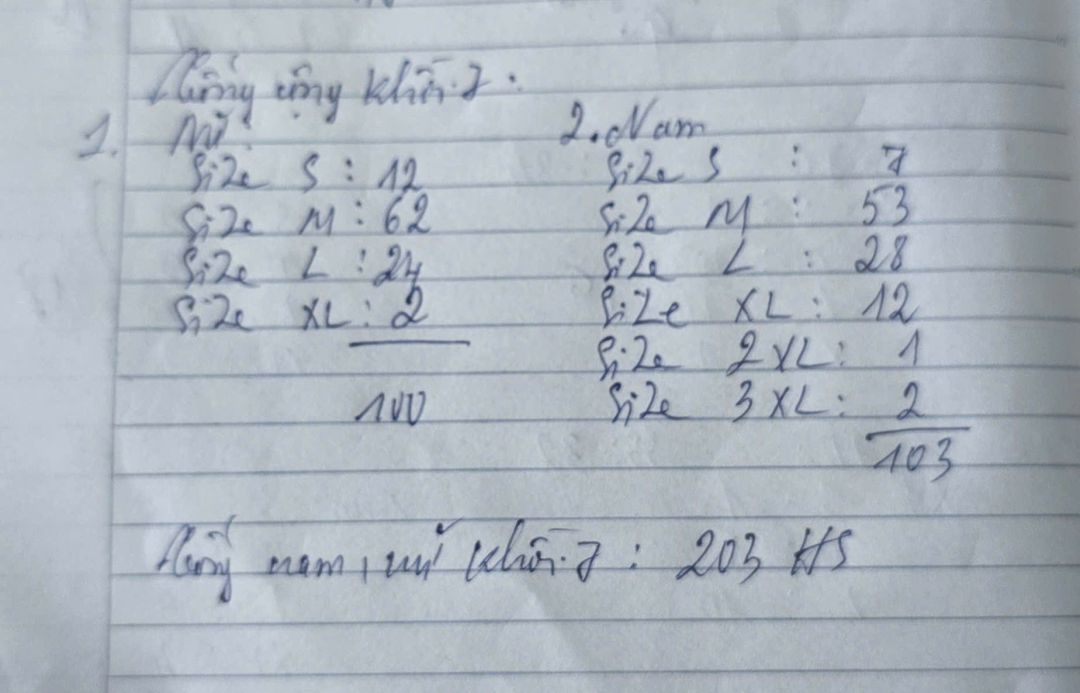 Tổng cộng khối 7:
1. Nữ:
Size S : 12
Size M : 62
Size L : 24
Size XL : 2
100
2. Nam
Size S : 7
Size M : 53
Size L : 28
Size XL : 12
Size 2XL : 1
Size 3XL : 2
103
Tổng nam, nữ khối 7 : 203 HS